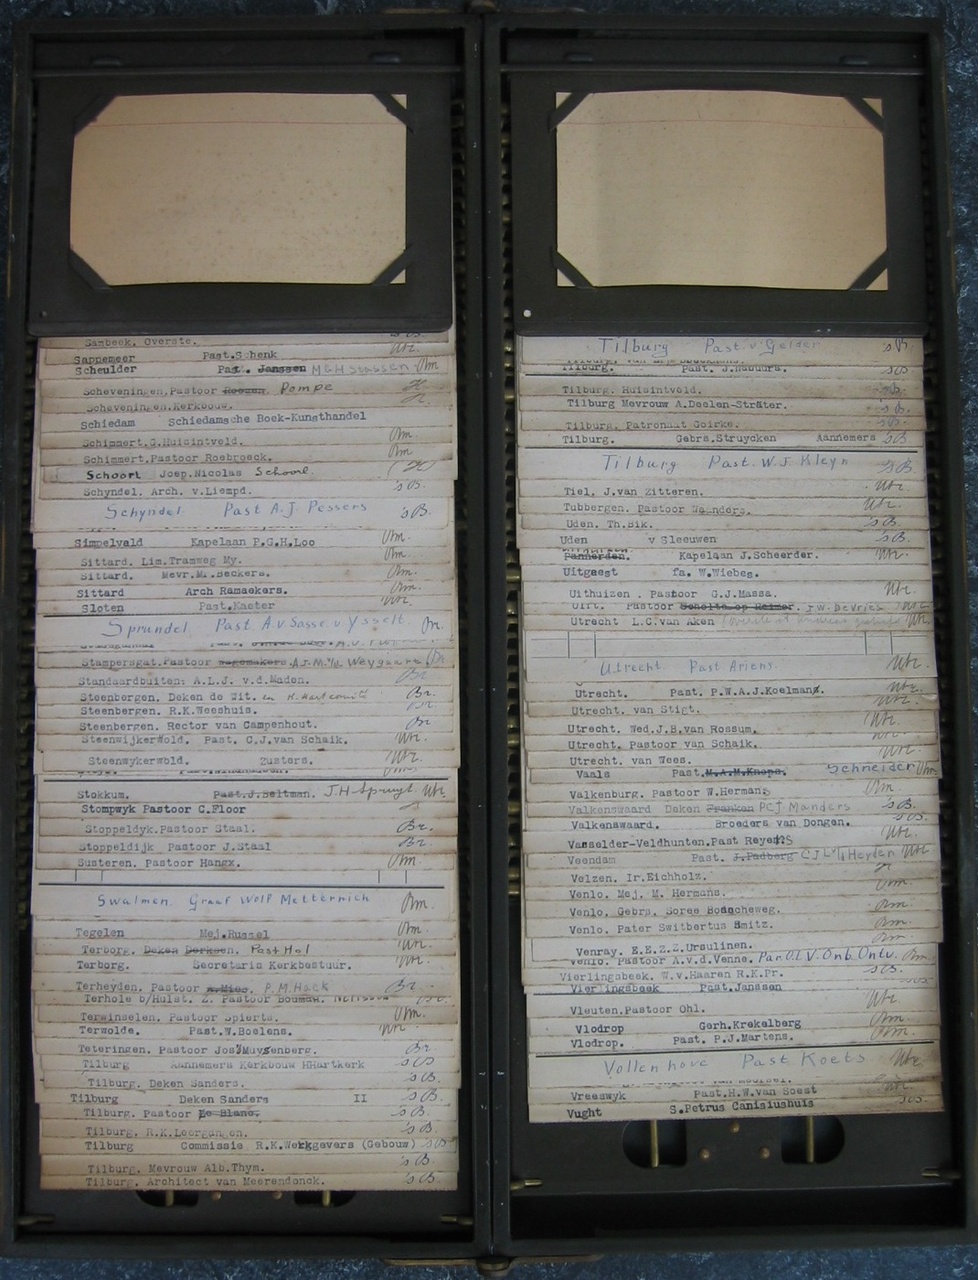 Sambeek. Overste. 's B.
Sappemeer Past.Schenk Utr.
Scheulder Past. Janssen M G H Stassen Rm
Scheveningen.Pastoor Pompe H.
Scheveningen.Kerkbouw. H.
Schiedam Schiedamsche Boek-Kunsthandel
Schimmert.G.Huisintveld. Rm.
Schimmert.Pastoor Roebroeck. Rm
Schoorl Joep.Nicolas Schoorl
Schyndel. Arch. v.Liempd. 's B.
Schyndel Past A.J Pessers 's B.
Simpelveld Kapelaan P.G.H.Loo Rm.
Sittard. Lim.Tramweg My. Rm.
Sittard. Mevr.M. Beckers. Rm.
Sittard Arch Ramaekers. Rm.
Sloten Past.Kaeter Utr.
Sprundel Past A.v Sasse v Ysselt. Br.
Stampersgat.Pastoor A.J.M. v/d Weygaard Br
Standaardbuiten: A.L.J. v.d.Maden. Br
Steenbergen. Deken de Wit. en Br.
Steenbergen. R.K.Weeshuis. Br
Steenbergen. Rector van Campenhout. Br
Steenwijkerwold. Past. C.J.van Schaik. Utr.
Steenwykerwold. Zusters. Utr.
Stokkum. Past.J.Beltman. J.H Spruyt Utr.
Stompwyk Pastoor C.Floor
Stoppeldyk.Pastoor Staal. Br.
Stoppeldijk Pastoor J.Staal Br.
Susteren. Pastoor Hangx. Rm
Swalmen. Graaf Wolf Metternich Rm.
Tegelen Mej.Russel Rm
Terborg. Deken Derksen. Past Hol Utr.
Terborg. Secretaris Kerkbestuur. Utr.
Terheyden. Pastoor A.Mies. P.M.Hack Br.
Terhole b/Hulst. Z. Pastoor Bouman. Br.
Terwinselen. Pastoor Spierts. Rm
Terwolde. Past.W.Boelens. Utr.
Teteringen. Pastoor Jos.Muysenberg. Br.
Tilburg Aannemers Kerkbouw HHartkerk 's B
Tilburg. Deken Sanders. 's B.
Tilburg Deken Sanders II 's B.
Tilburg. Pastoor Le Blanc. 's B.
Tilburg. R.K.Leergangen. 's B.
Tilburg Commissie R.K.Werkgevers (Gebouw) 's B
Tilburg. Mevrouw Alb.Thym. 's B.
Tilburg. Architect van Meerendonck. 's B.
Tilburg Past v. Gelden 's B.
Tilburg. Past. J.Nabuurs. 's B
Tilburg. Huisintveld. 's B.
Tilburg Mevrouw A.Daelen-Sträter. 's B.
Tilburg. Patronaat Goirke. 's B.
Tilburg. Gebrs.Struycken Aannemers 's B
Tilburg Past. W.J. Kleyn 's B.
Tiel. J.van Zitteren. Utr.
Tubbergen. Pastoor Waanders. Utr.
Uden. Th.Bik. 's B.
Uden v Sleeuwen 's B.
Pannerden. Kapelaan J.Scheerder. Utr.
Uitgeest fa. W.Wiebes.
Uithuizen . Pastoor G.J.Massa. Utr.
Ulft. Pastoor Scholte op Reimer. J.W. De Vries Utr
Utrecht L.C.van Aken Utr.
Utrecht. Past. Ariens. Utr.
Utrecht. Past. P.W.A.J.Koelman. Utr.
Utrecht. van Stigt. Utr.
Utrecht. Wed.J.B.van Rossum. Utr.
Utrecht. Pastoor van Schaik. Utr.
Utrecht. van Wees. Utr.
Vaals Past.M.A.M.Knops. Schneider Rm
Valkenburg. Pastoor W.Hermans Rm
Valkenswaard Deken Franken P C J Manders 's B.
Valkenswaard. Broeders van Dongen. 's B.
Vasselder-Veldhunten.Past Reyers Utr.
Veendam Past. J.Padberg Heyden Utr
Velzen. Ir.Eichholz. H
Venlo. Mej. M. Hermans. Rm
Venlo. Gebrs. Soree Bosscheweg. Rm.
Venlo. Pater Switbertus Smitz. Rm
Venray. E.E.Z.Z.Ursulinen. Rm
Venlo. Pastoor A.v.d.Venne. Par.O.L.V.Onb.Ontv. Rm
Vierlingsbeek. W.v.Haaren R.K.Pr. 's B.
Vierlingsbeek Past.Janssen 's B.
Vleuten.Pastoor Ohl. Utr.
Vlodrop Gerh.Krekelberg Rm
Vlodrop. Past. P.J.Martens. Rm.
Vollenhove Past Koets Utr
Vreeswyk Past.H.W.van Soest Utr.
Vught S.Petrus Canisiushuis 's B.